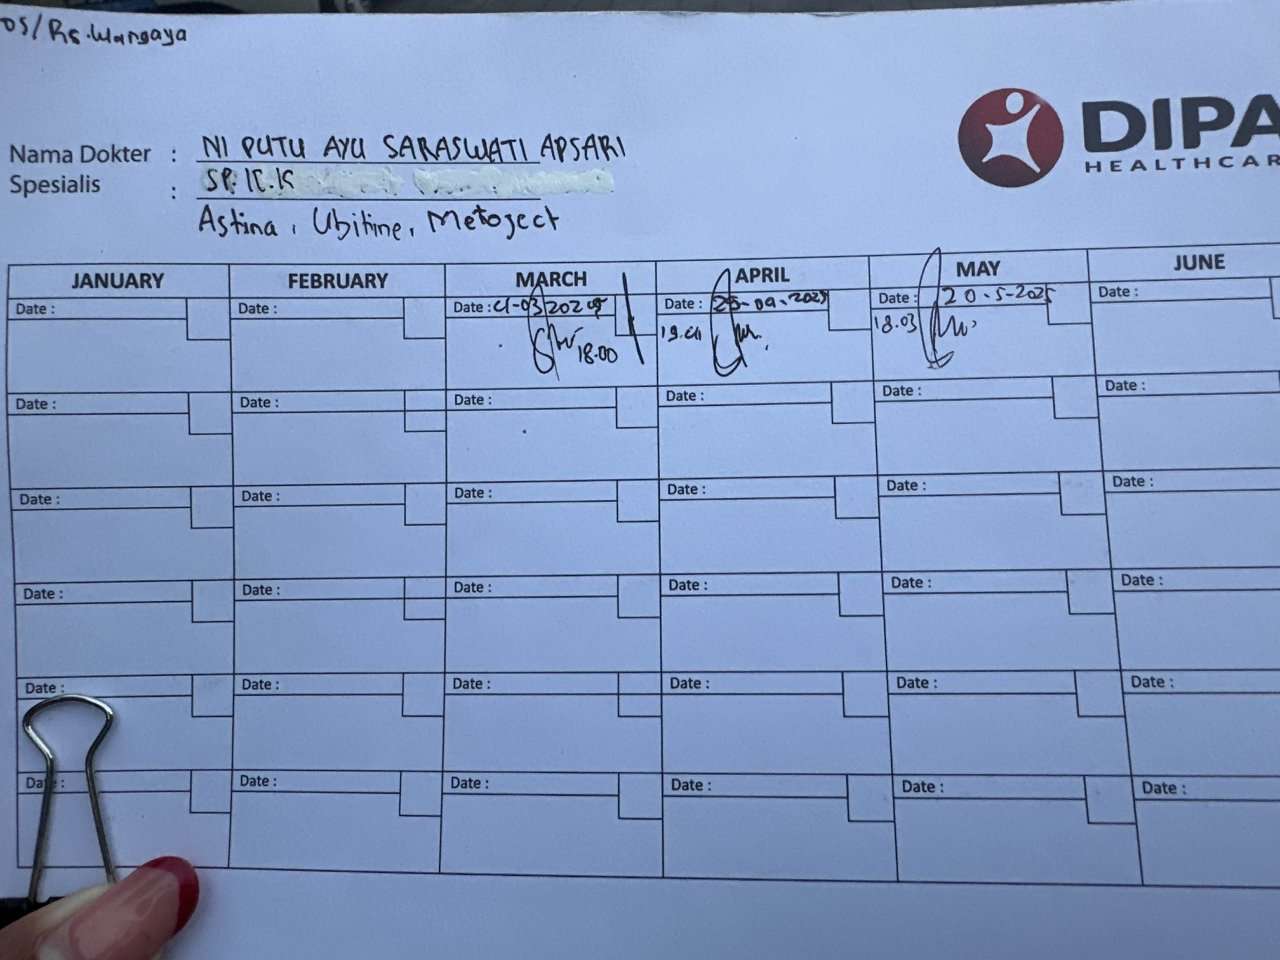 OS/Rs.Wangaya
DIPA
HEALTHCAR
Nama Dokter : NI PUTU AYU SARASWATI APSARI
Spesialis : SP. K.K
Astina, Ubitine, Metoject
JANUARY FEBRUARY MARCH APRIL MAY JUNE
Date : Date : Date : Date : Date : 20-5-2025 Date :
18.00 18.03
Date : Date : Date : Date : Date : Date :
Date : Date : Date : Date : Date : Date :
Date : Date : Date : Date : Date : Date :
Date : Date : Date : Date : Date : Date :
Date : Date : Date : Date : Date :